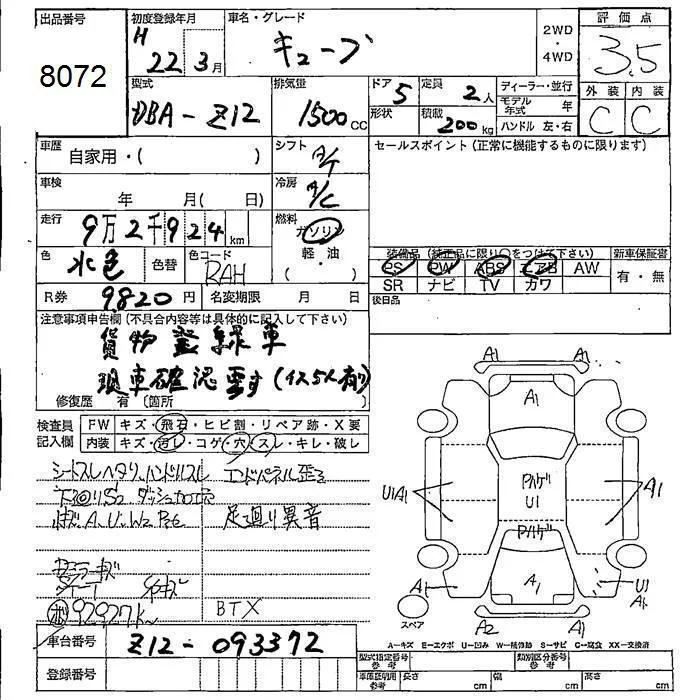 出品番号
8072
初度登録年月
H 22年 3月
車名・グレード
キューブ
2WD
・
4WD
評価点
3.5
外装 内装
C C
型式
DBA-Z12
排気量
1500cc
ドア 5
形状
定員 2人
積載 200kg
ディーラー・並行
モデル年式 年
ハンドル 左・右
車歴
自家用・( )
シフト A/T
セールスポイント(正常に機能するものに限ります)
車検
年 月( 日)
冷房 A/C
走行
9万2千924km
燃料
ガソリン
・
軽・油
( )
色
水色
色替
色コード
RAH
装備品(純正品に限り○をつけて下さい)
PS PW ABS エアB AW
SR ナビ TV カワ
新車保証書
有・無
R券 9,820円
名変期限 月 日
後日品
注意事項申告欄(不具合内容等は具体的に記入して下さい)
貨物登録車
現車確認要す(イス5人有り)
修復歴 有(箇所
検査員
記入欄
FW キズ・飛石・ヒビ割・リペア跡・X要
内装 キズ・汚レ・コゲ・穴・スレ・キレ・破レ
シートスレヘタリ ハンドルスレ
エンドパネル歪ミ
ダッシュ加工穴
A、U、W2
足廻り異音
92927k
BTX
車台番号
Z12-093372
登録番号
A1 A1
A1
U1A1
Pハゲ
U1
A1
Pハゲ
A1
A1
U1
A1
A2 A1
スペア
A―キズ E―エクボ U―凹み W―補修跡 S―サビ C―腐食 XX―交換済
型式指定番号
参考
類別区分番号
参考
車庫証明用
参考
長さ cm
幅 cm
高さ cm